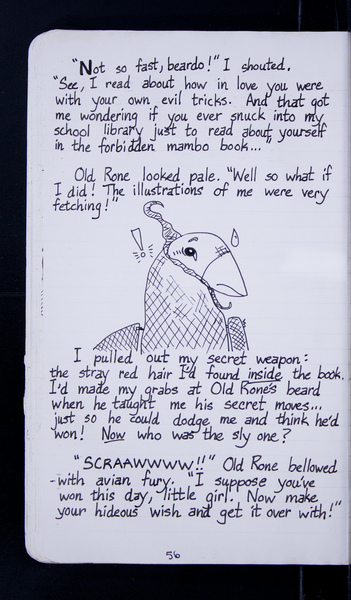 "Not so fast, beardo!" I shouted.
"See, I read about how in love you were
with your own evil tricks. And that got
me wondering if you ever snuck into my
school library just to read about yourself
in the forbidden mambo book..."
Old Rone looked pale. "Well so what if
I did! The illustrations of me were very
fetching!"
!
I pulled out my secret weapon:
the stray red hair I'd found inside the book.
I'd made my grabs at Old Rone's beard
when he taught me his secret moves...
just so he could dodge me and think he'd
won! Now who was the sly one?
"SCRAAWWWW!!" Old Rone bellowed
with avian fury. "I suppose you've
won this day, little girl! Now make
your hideous wish and get it over with!"
56